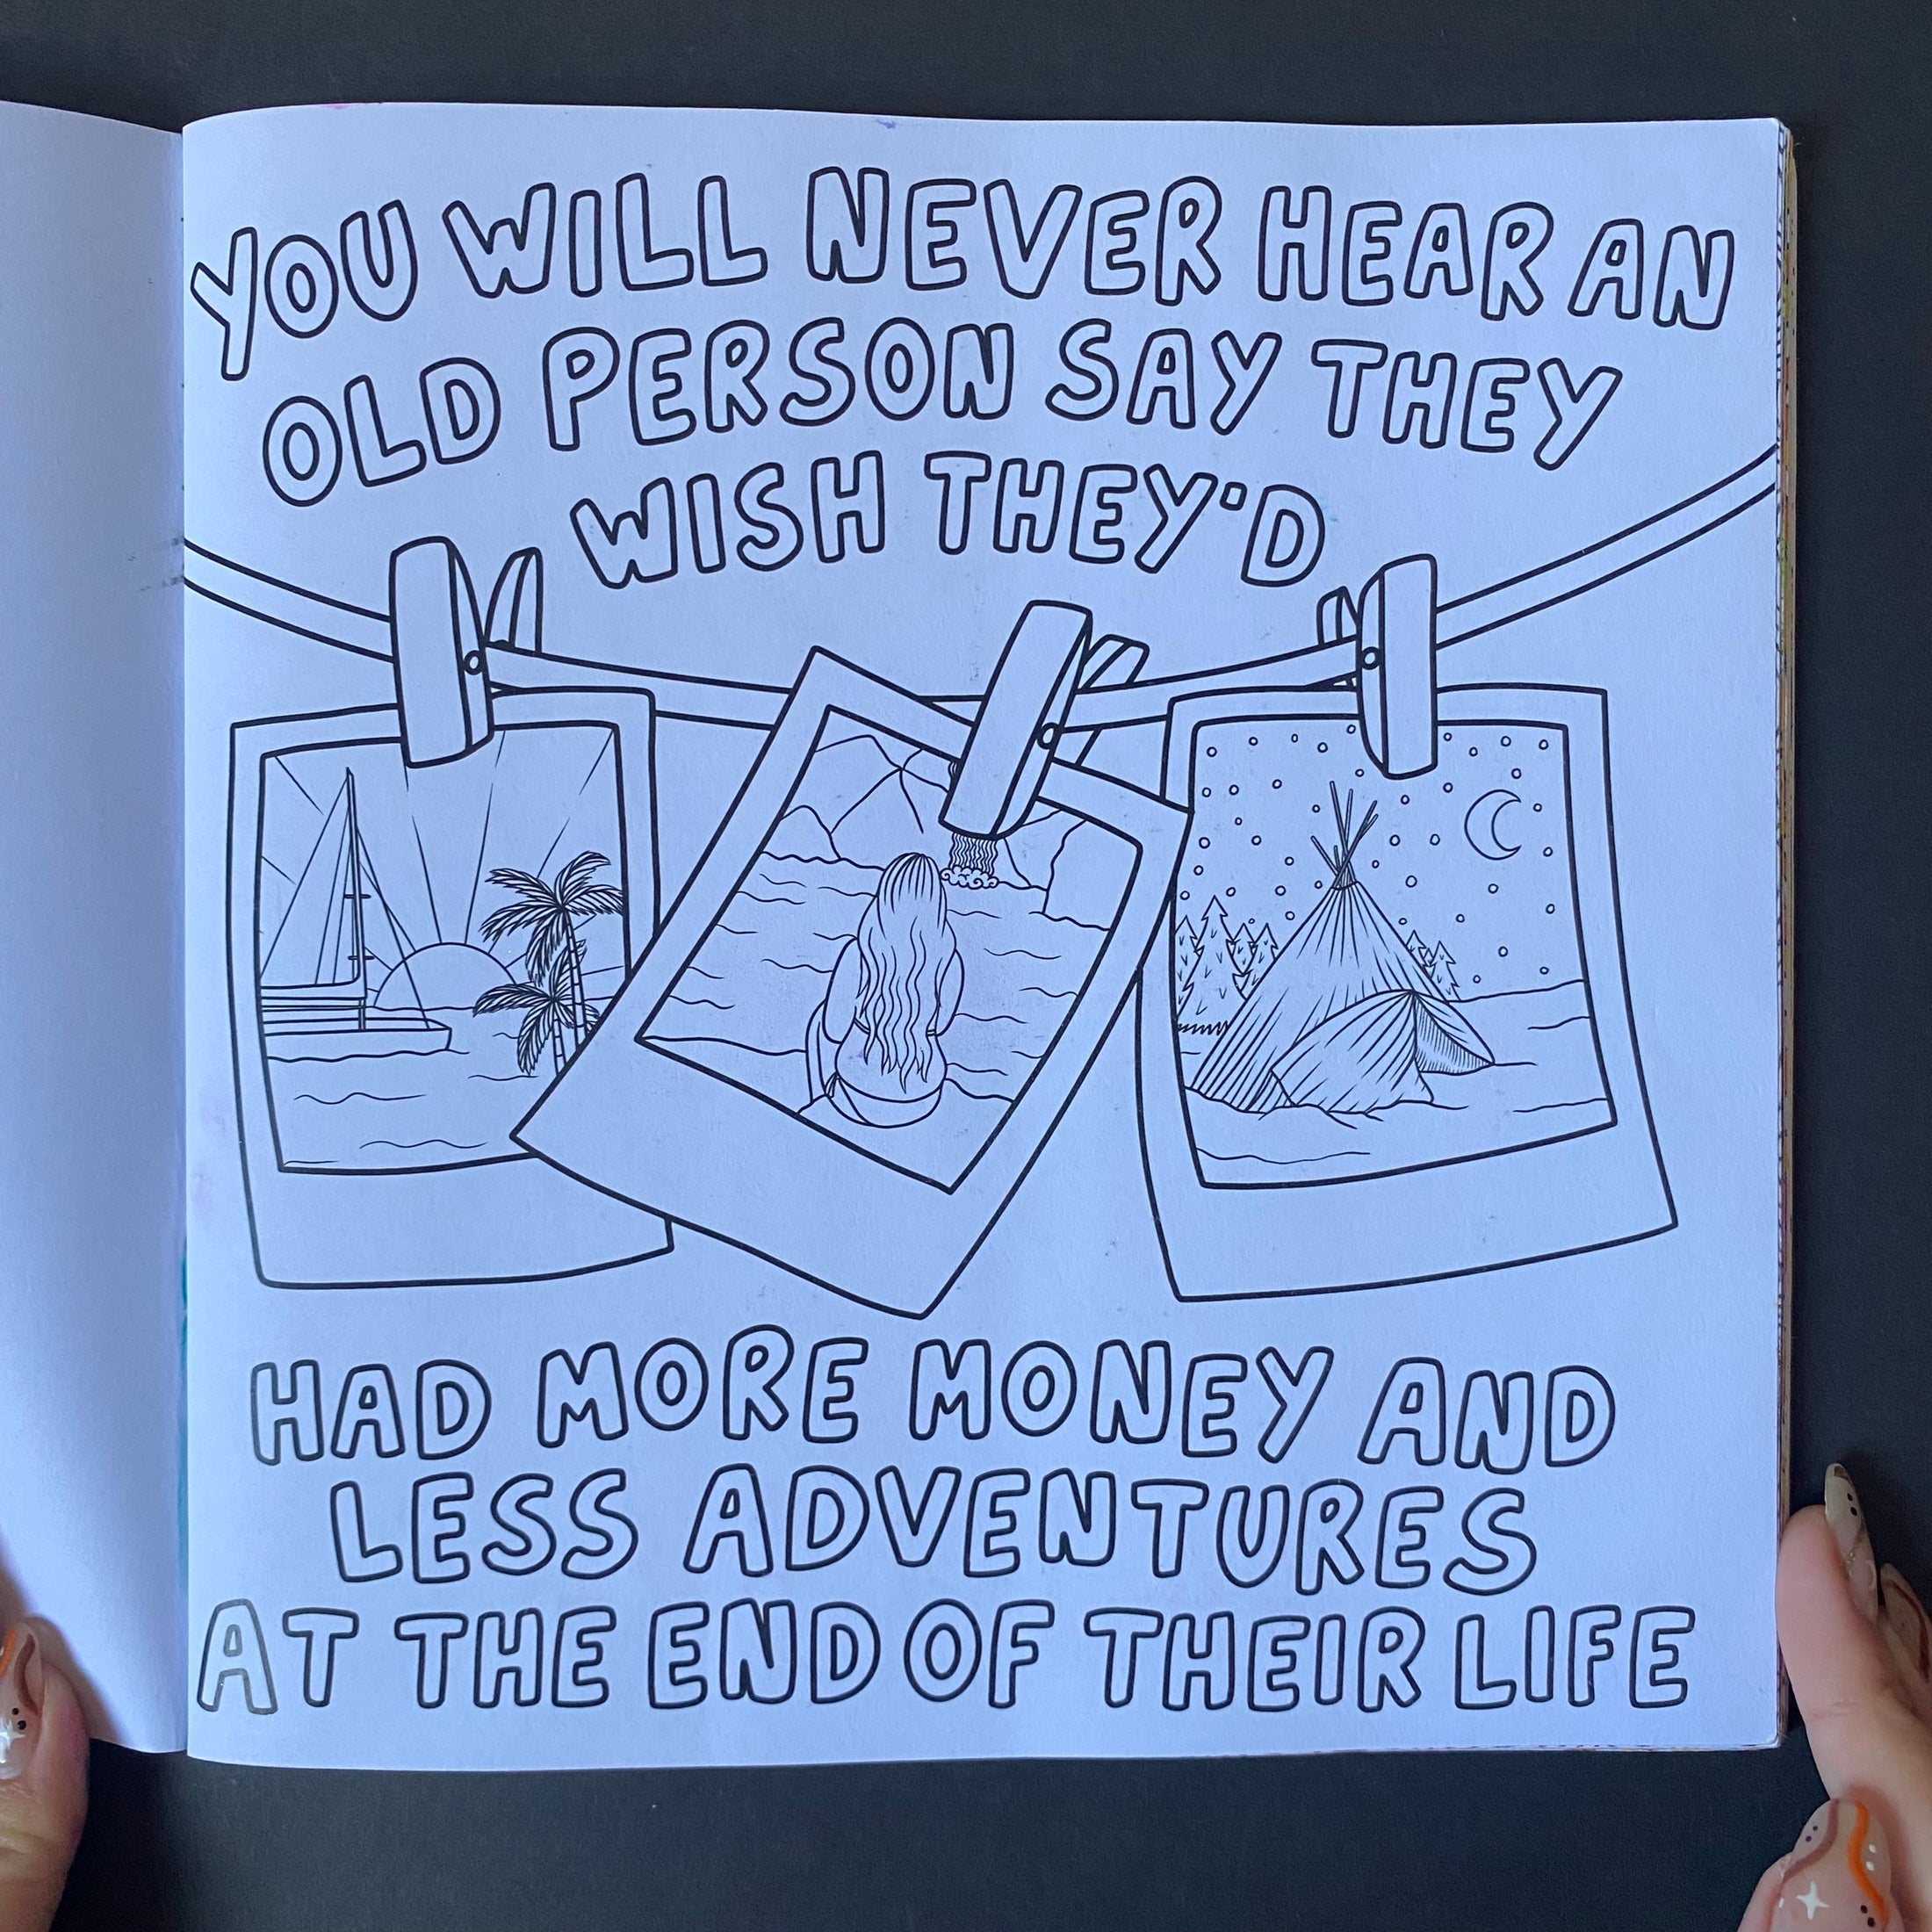 YOU WILL NEVER HEAR AN
OLD PERSON SAY THEY
WISH THEY'D
HAD MORE MONEY AND
LESS ADVENTURES
AT THE END OF THEIR LIFE